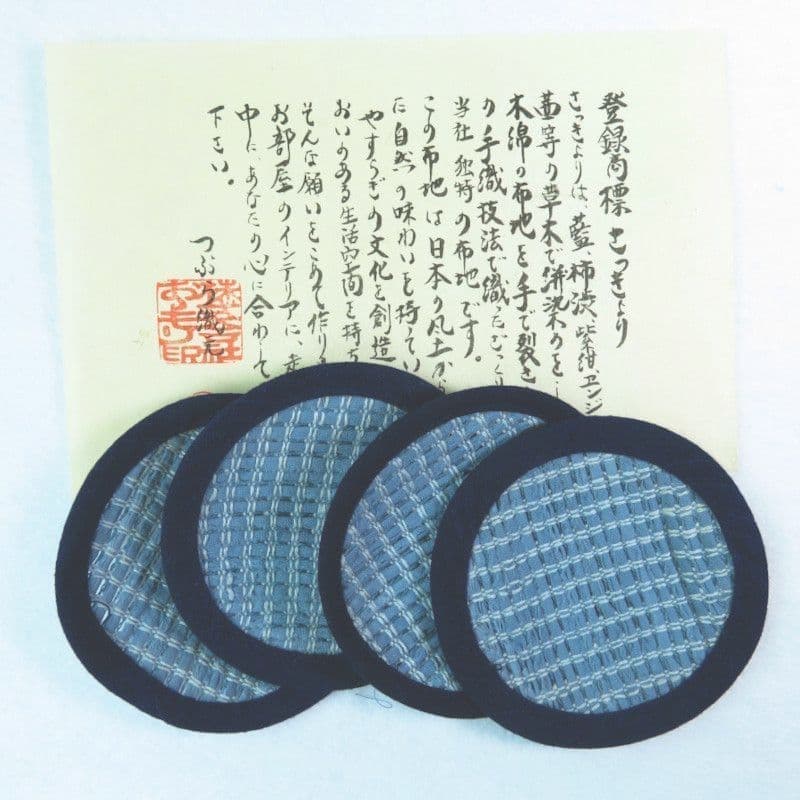 登録商標 さっきより
さっきよりは、藍、柿渋、紫紺、エンジ
茜等の草木で併染めを
木綿の布地を手で裂き
の手織技法で織ったむっくり
当社独特の布地です。
この布地は日本の風土から
に自然の味わいを持ってい
やすらぎの文化を創造
おいのある生活空間を持ち
そんな願いをこめて作り
お部屋のインテリアに、
中に、あなたの心に合わして
下さい。
つぶり織元